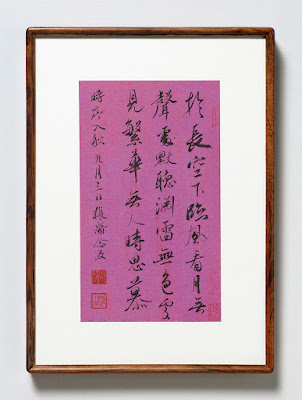 於長空下臨風看月無
聲處默聽淵雷無色處
見繁華無人時思慕
時序入秋九月三日張